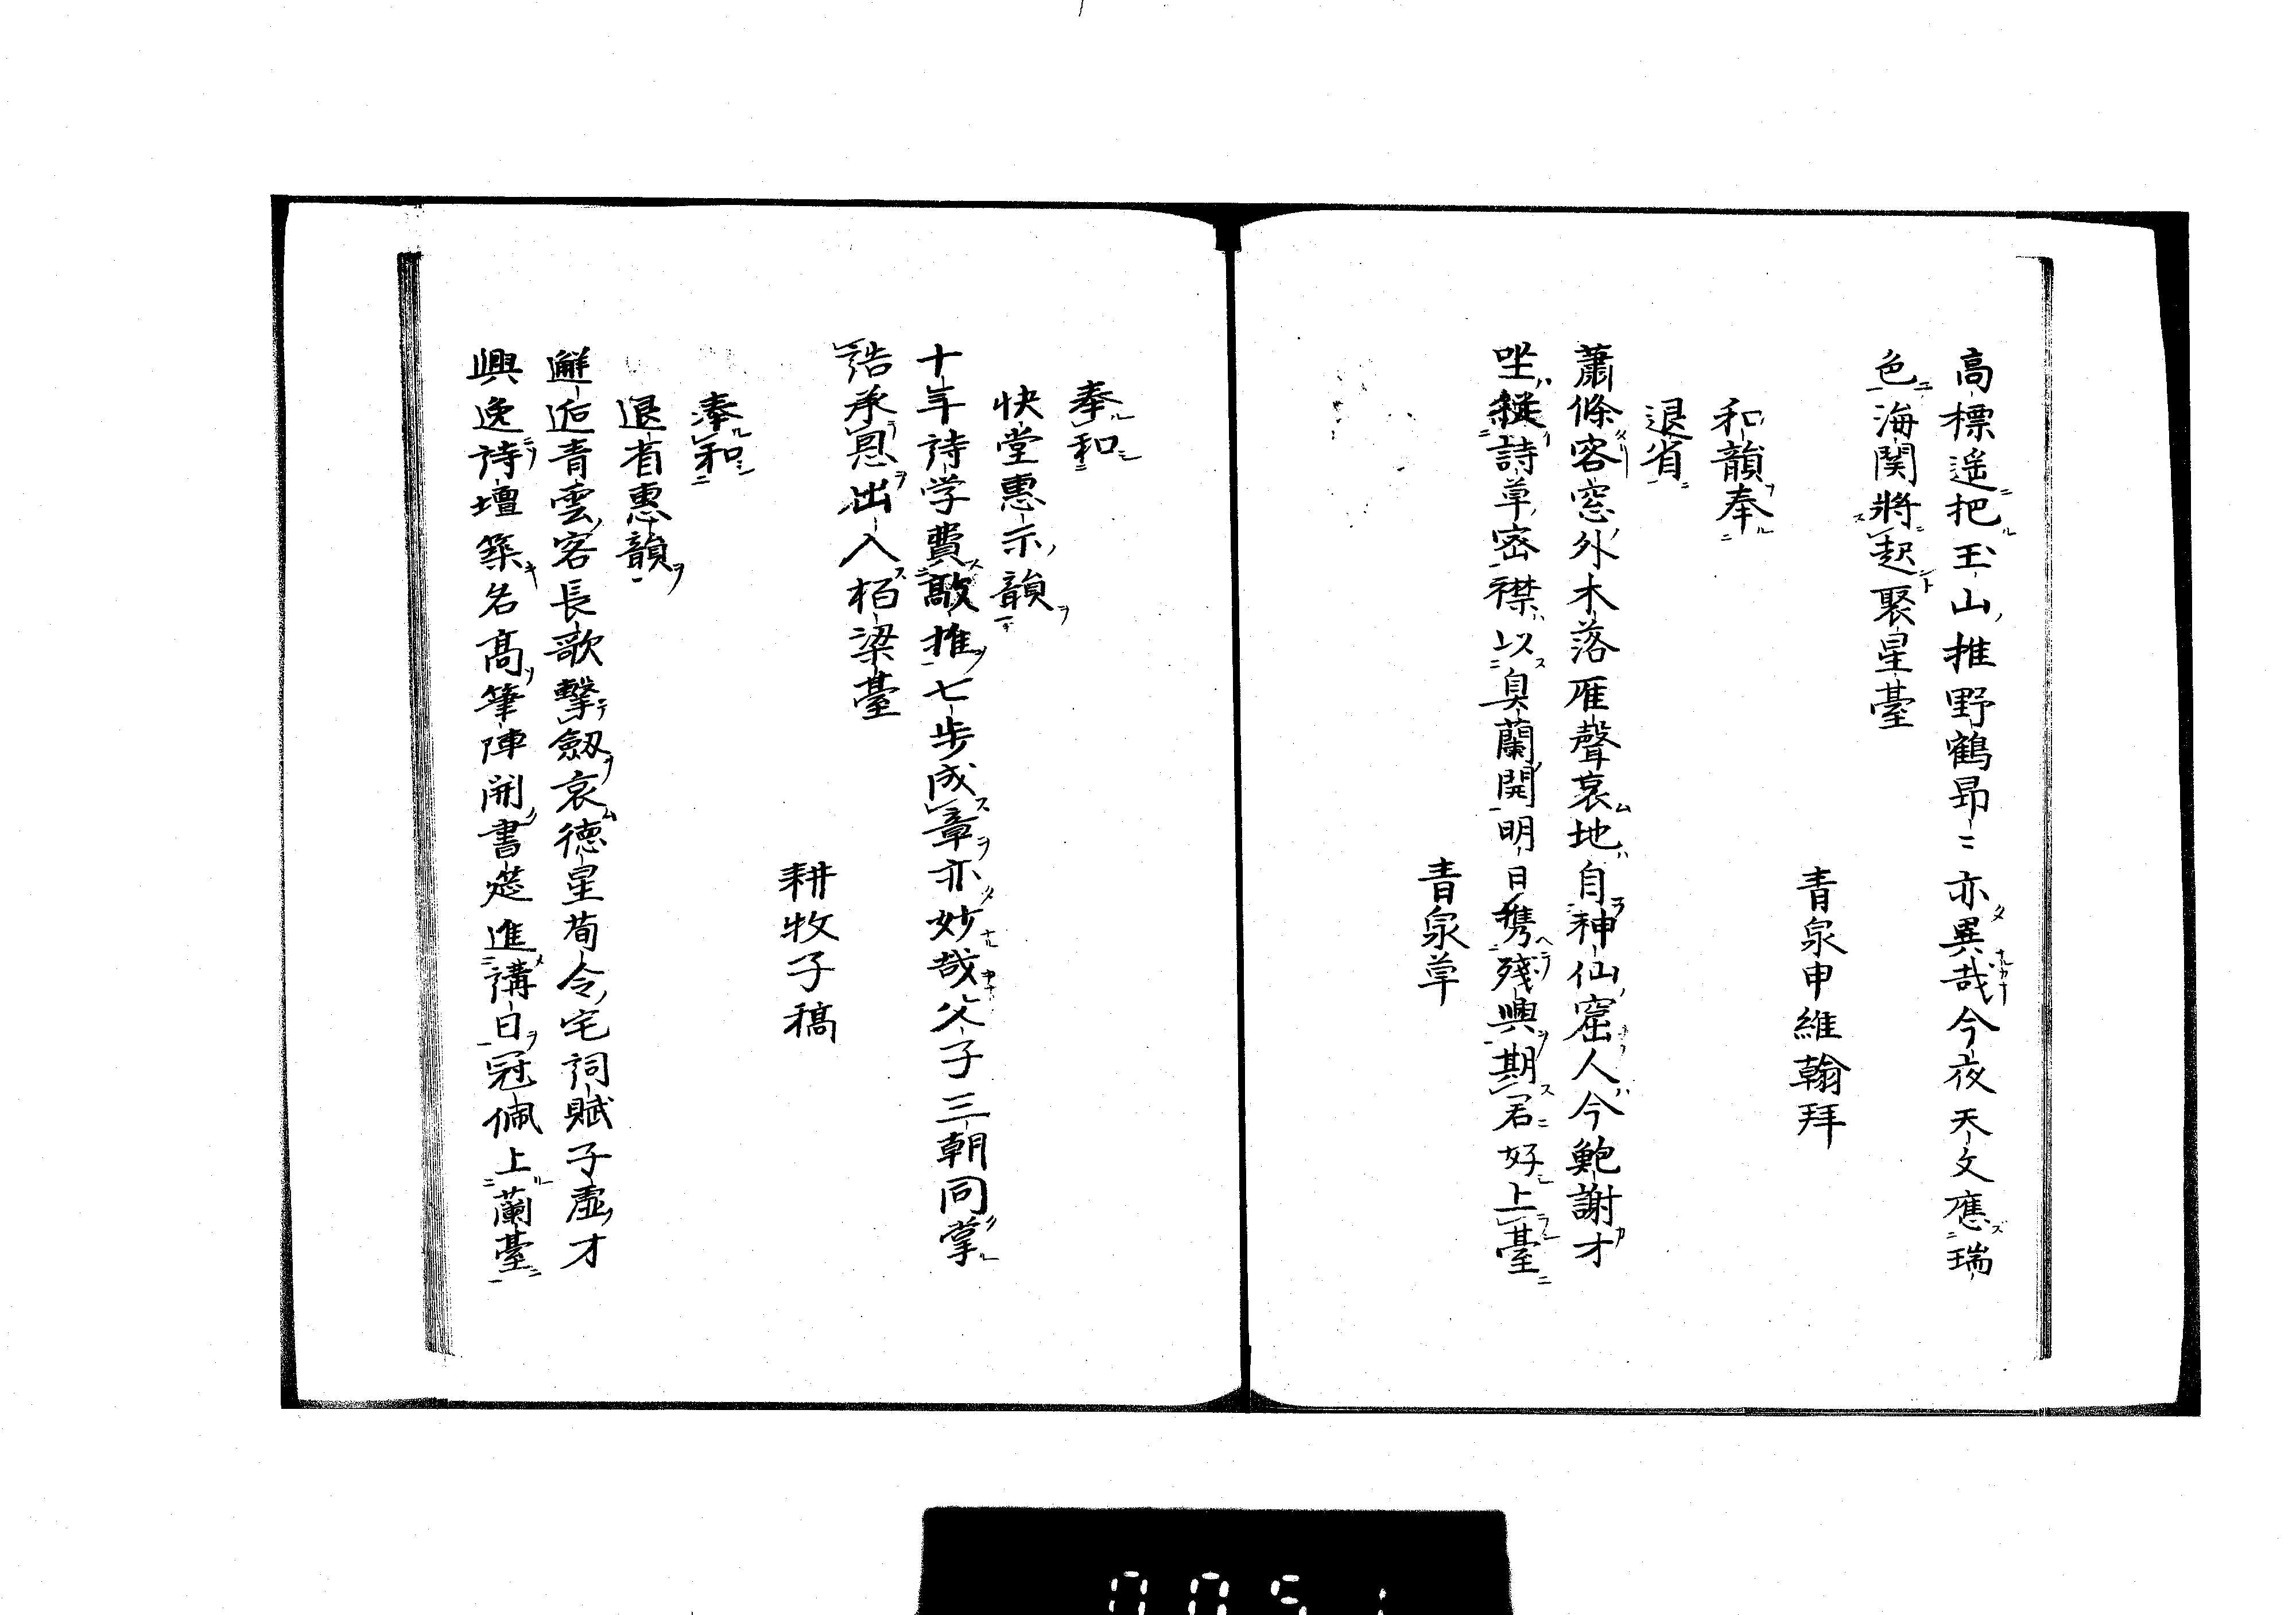 高標遥把玉山推野鶴昂〻亦異哉今夜天文應瑞
色海関將起聚星臺
青泉申維翰拜
和韻奉
退省
蕭條客窓外木落雁聲哀地自神仙窟人今鮑謝才
坐縱詩草密襟以臭蘭開明日攜殘興期君好上臺
青泉草
奉和
快堂惠示韻
十年詩学費敲推七步成章亦妙哉父子三朝同掌
誥承恩出入栢梁臺
耕牧子稿
奉和
退省惠韻
邂逅青雲客長歌擊劔哀德星荀令宅詞賦子虛才
興逸詩壇築名高筆陣開書筵進講日冠佩上蘭臺
0051